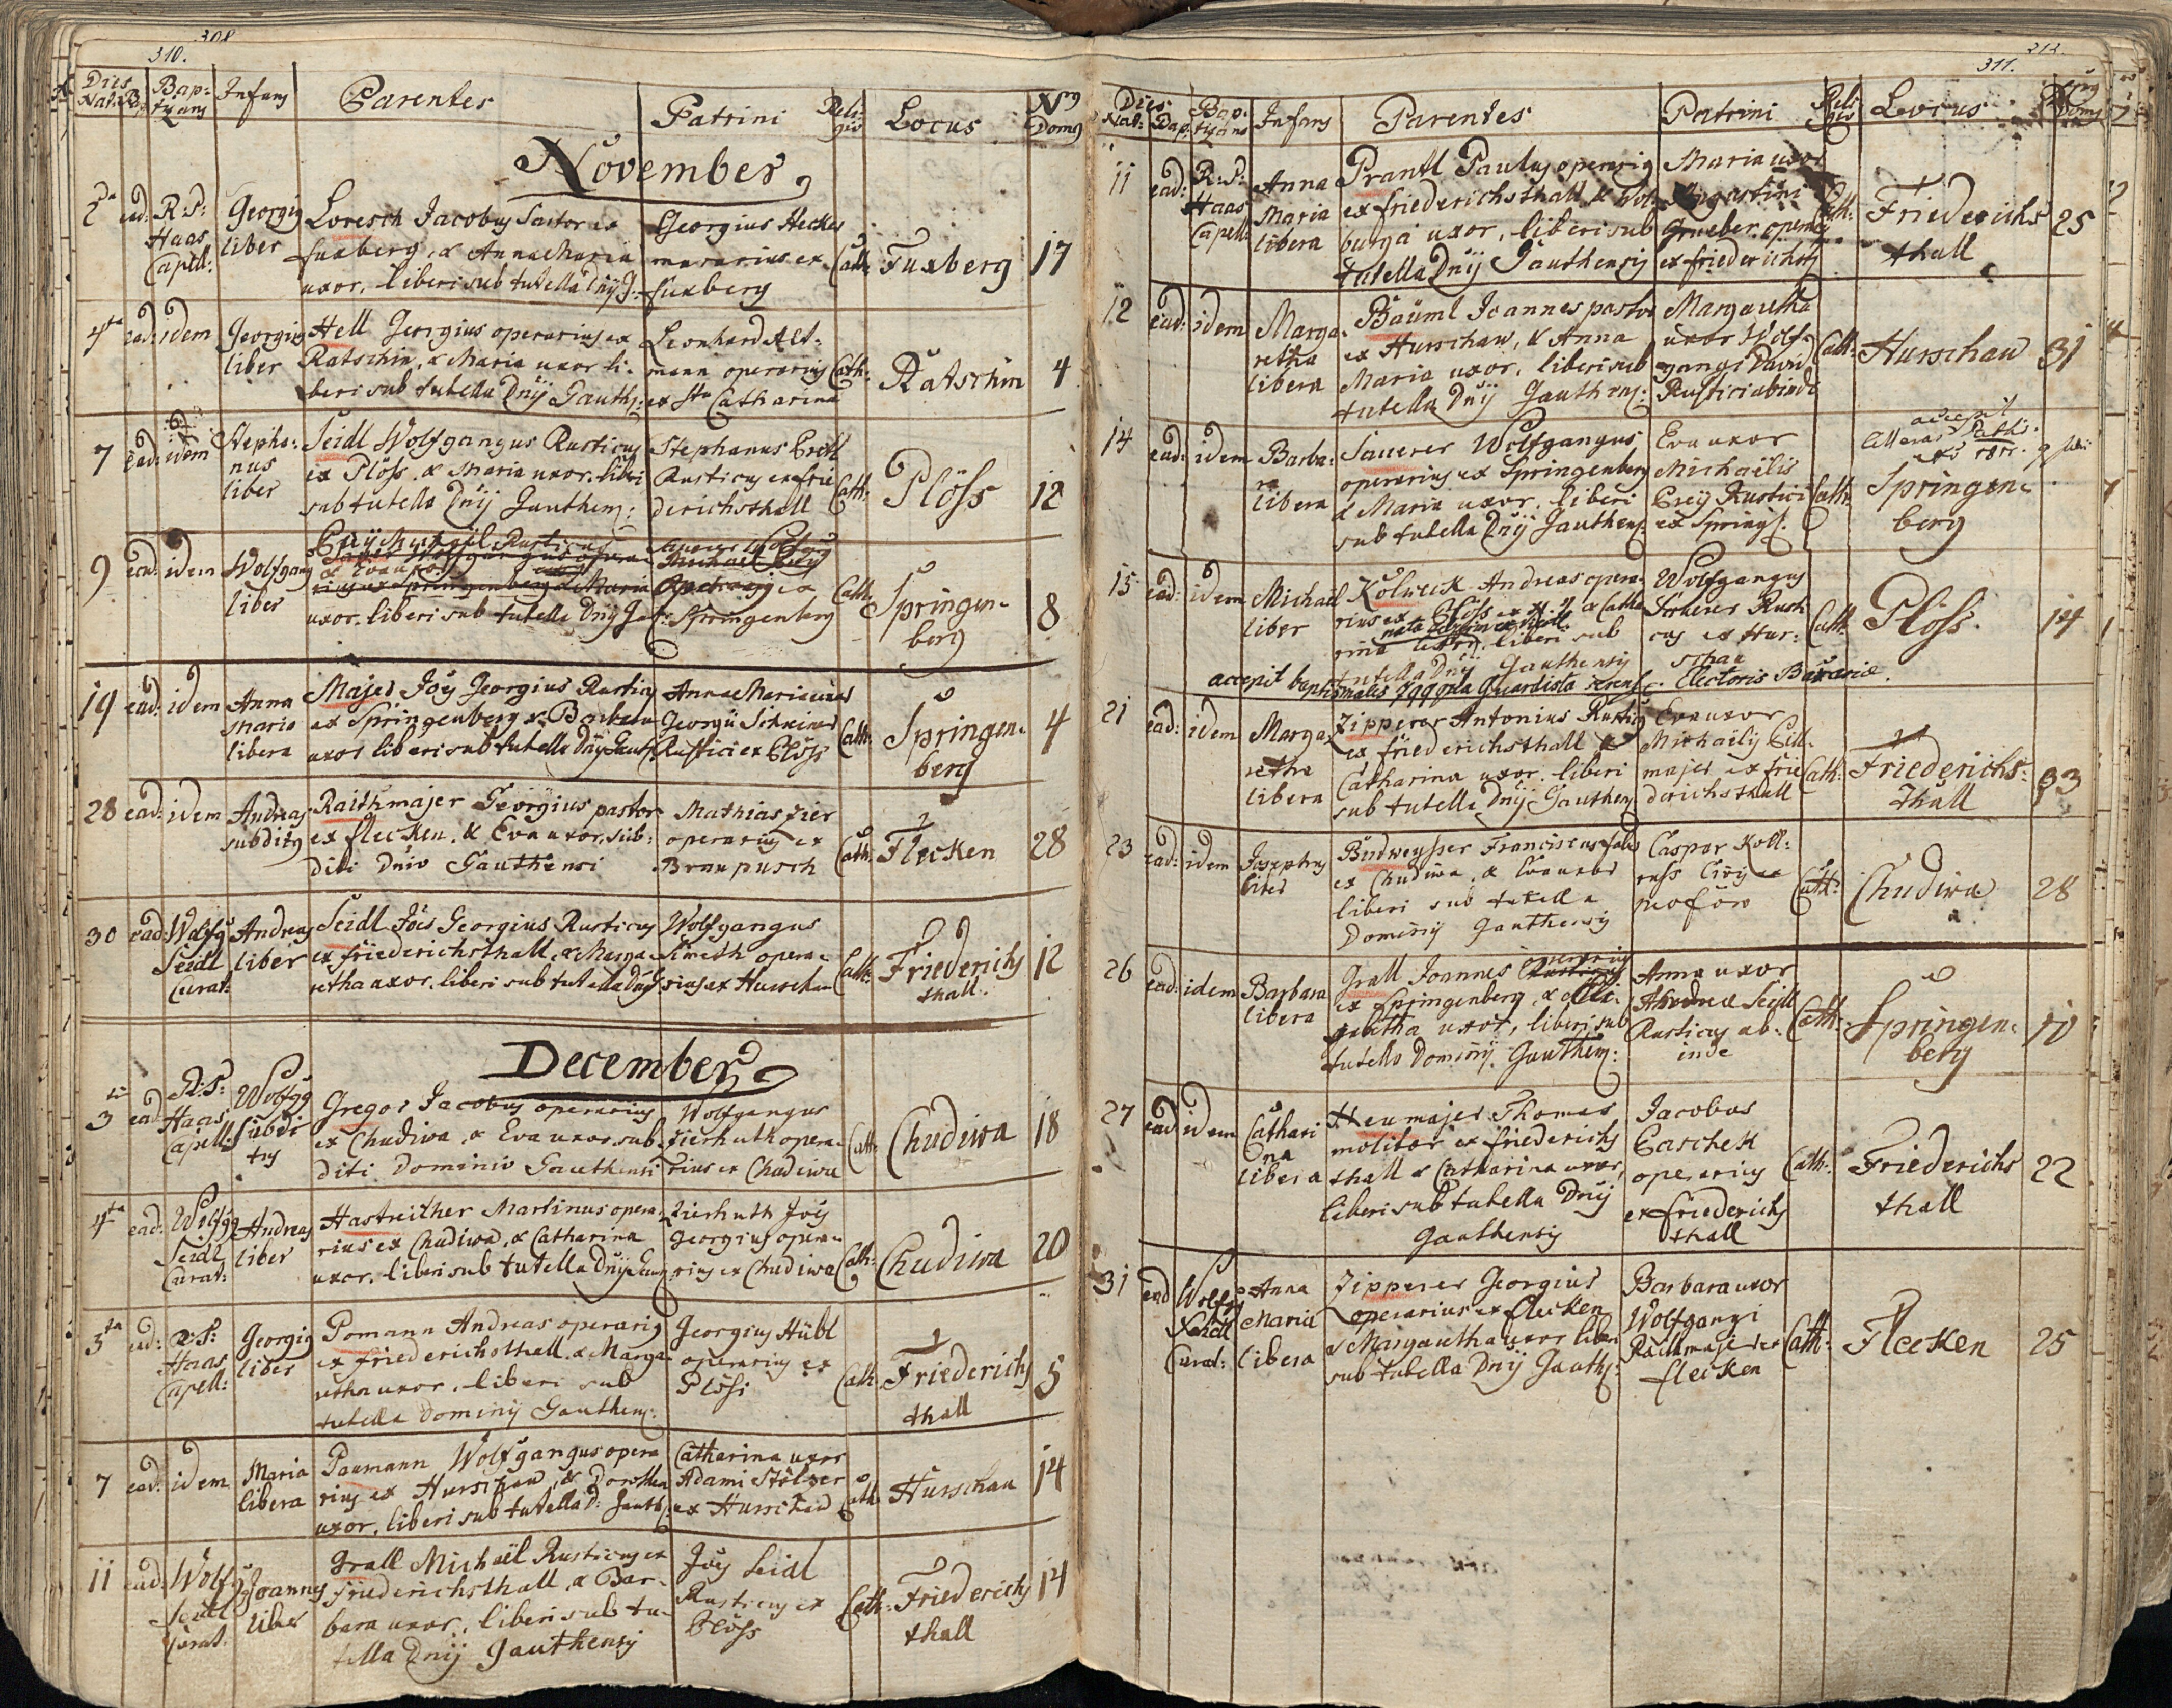 308
310.
Dies Nat: B. Bap: tizans Infans Parentes Patrini Reli gio Locus Nrg Domg
November
2da ead: R:P: Haas Capell: Georgig liber
Loresch Jacobus Sartor ex
fuxberg, & Anna Maria
uxor, liberi sub tutella Dnÿ G:
Georgius Hecker
ex
fuxberg
Cath: Fuxberg 17
4ta ead: idem Georgig liber
Hell Georgius operarius ex
Ratschin, & Maria uxor li-
beri sub tutella Dnÿ Gauth:
Leonhard Alt-
mann operarig
ex Sta Catharina
Cath: Ratschin 4
7 ead: idem Stepha: nus liber
Seidl Wolfgangus Rusticus
ex Plöss, & Maria uxor, liberi
sub tutella Dnÿ Gauthens:
Stephanus Ertl
Rusticus ex frie
derichsthall
Cath: Plöss 12
9 ead: idem Wolfgang liber
uxor, liberi sub tutella Dnÿ
ex
Springenberg
Cath: Springen- berg 8
19 ead: idem Anna Maria libera
Majer Joës Georgius Rusticg
ex Springenberg & Barbara
uxor liberi sub tutella Dnÿ Gauth
Anna Maria uxor
Georgii Schreiner
Rustici ex Plöss
Cath: Springen- berg 4
28 ead: idem Andreas subditg
Raithmajer Georgius pastor
ex flecken, & Eva uxor, sub:
diti Dnio Gauthensi
Mathias Zier
operarig ex
Braupusch
Cath: Flecken 28
30 ead: Wolfg Seidl Curat: Andreas liber
Seidl Joës Georgius Rusticus
ex friederichsthall, & Marga-
retha uxor, liberi sub tutella Dnÿ G
Wolfgangus
Kmeth opera-
rius ex Hurschau
Cath: Friederichs thall 12
December
3 ead: R:P: Haas Capell: Wolfgg subdi tus
Gregor Jacobus operarius
ex Chudiwa, & Eva uxor, sub-
diti Dominio Gauthensi
Wolfgangus
Zierhuth opera-
rius ex Chudiwa
Cath: Chudiwa 18
4ta ead: Wolfgg Seidl Curat: Andreas liber
Hastreither Martinus opera-
rius ex Chudiwa, & Catharina
uxor, liberi sub tutella Dnÿ Gau
Zierhuth Joës
Georgius opera-
rius ex Chudiwa
Cath: Chudiwa 20
5ta ead: R:P: Haas Capell: Georgig liber
Pomann Andreas operarig
ex friederichsthall, & Marga-
retha uxor, liberi sub
tutella Dominÿ Gauthens:
Georgius Hübl
operarius ex
Plöss
Cath: Friederichs thall 5
7 ead: idem Maria libera
Paumann Wolfgangus opera
rius ex Hurschau, & Dorothea
uxor, liberi sub tutella D: Gauth:
Catharina uxor
Adami Stölzer
ex Hurschau
Cath: Hurschau 14
11 ead: Wolfg Seidl Curat: Joannes liber
Grall Michaël Rusticus ex
Friederichsthall, & Bar-
bara uxor, liberi sub tu-
tella Dnÿ Gauthensÿ
Joës Seidl
Rusticus ex
Plöss
Cath: Friederichs thall 14
311.
Dies Nat: Bap: Bap: tizans Infans Parentes Patrini Reli gio Locus Domg
11 ead: R:P: Haas Capell: Anna Maria libera
Prantl Paulus operarig
ex friederichsthall & Wal-
burga uxor, liberi sub
tutella Dnÿ Gauthensÿ
Maria uxor
Augustini
Grueber operarij
ex friederichsth
Cath: Friederichs thall 25
12 ead: idem Marga- retha libera
Bäuml Joannes pastor
ex Hurschau, & Anna
Maria uxor, liberi sub
tutella Dnÿ Gauthens:
Margaretha
uxor Wolf-
gangi
Rustici abinde
Cath: Hurschau 31
14 ead: idem Barba- ra libera
Sauerer Wolfgangus
operarius ex Springenberg
& Maria uxor, liberi
sub tutella Dnÿ Gauthens:
Eva uxor
Michaëlis
Rustici
ex Springb:
Cath: accepit
Springen- berg
15 ead: idem Michael liber
Kolweck Andreas opera-
rius ex Plöss & Catha
rina liberi sub
tutella Dnÿ Gauthensÿ
Wolfgangus
Rusti
cus ex Hur-
schau
Cath: Plöss. 14
accepit Electoris Bavariæ.
21 ead: idem Marga- retha libera
Zipperer Antonius Rusticg
ex friederichsthall &
Catharina uxor, liberi
sub tutella Dnÿ Gauthen
Eva uxor
Michaëlis
majer ex frie
derichsthall
Cath: Friederichs- thall 33
23 ead: idem Josephus liber
Budweysser Franciscus faber
ex Chudiwa, & Eva uxor
liberi sub tutella
Dominÿ Gauthensÿ
Caspar Koll-
ross
Cath: Chudiwa 28
26 ead: idem Barbara libera
Grall Joannes operarius
ex Springenberg, & Eli-
sabetha uxor, liberi sub
tutella Dominÿ Gauthens:
Anna uxor
Andreæ Seidl
Rusticus ab-
inde
Cath: Springen- berg 10
27 ead idem Cathari na libera
Neumajer Thomas
molitor ex friederichs
thall & Catharina uxor,
liberi sub tutella Dnÿ
Gauthensÿ
Jacobus
Paschek
operarius
ex friederichs
thall
Cath: Friederichs thall 22
31 ead Wolfg Seidl Curat: Anna Maria libera
Zipperer Georgius
operarius ex flecken
& Margaretha uxor liberi
sub tutella Dnÿ Gauths:
Barbara uxor
Wolfgangi
Raithmajer ex
flecken
Cath: Flecken 25